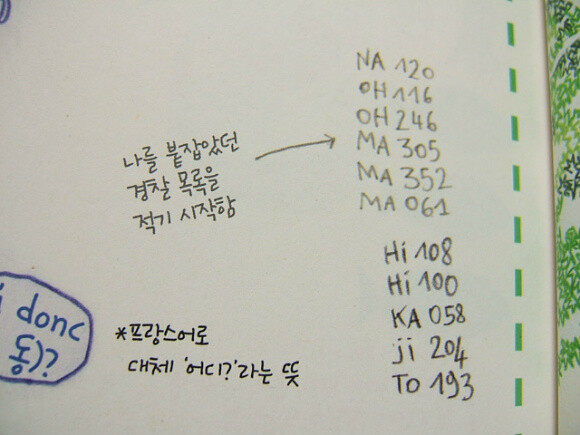 NA 120
OH 116
OH 246
MA 305
MA 352
MA 061
나를 붙잡았던
경찰 목록을
적기 시작함
Hi 108
Hi 100
KA 058
ji 204
To 193
i donc
동)?
*프랑스어로
대체 '어디?'라는 뜻